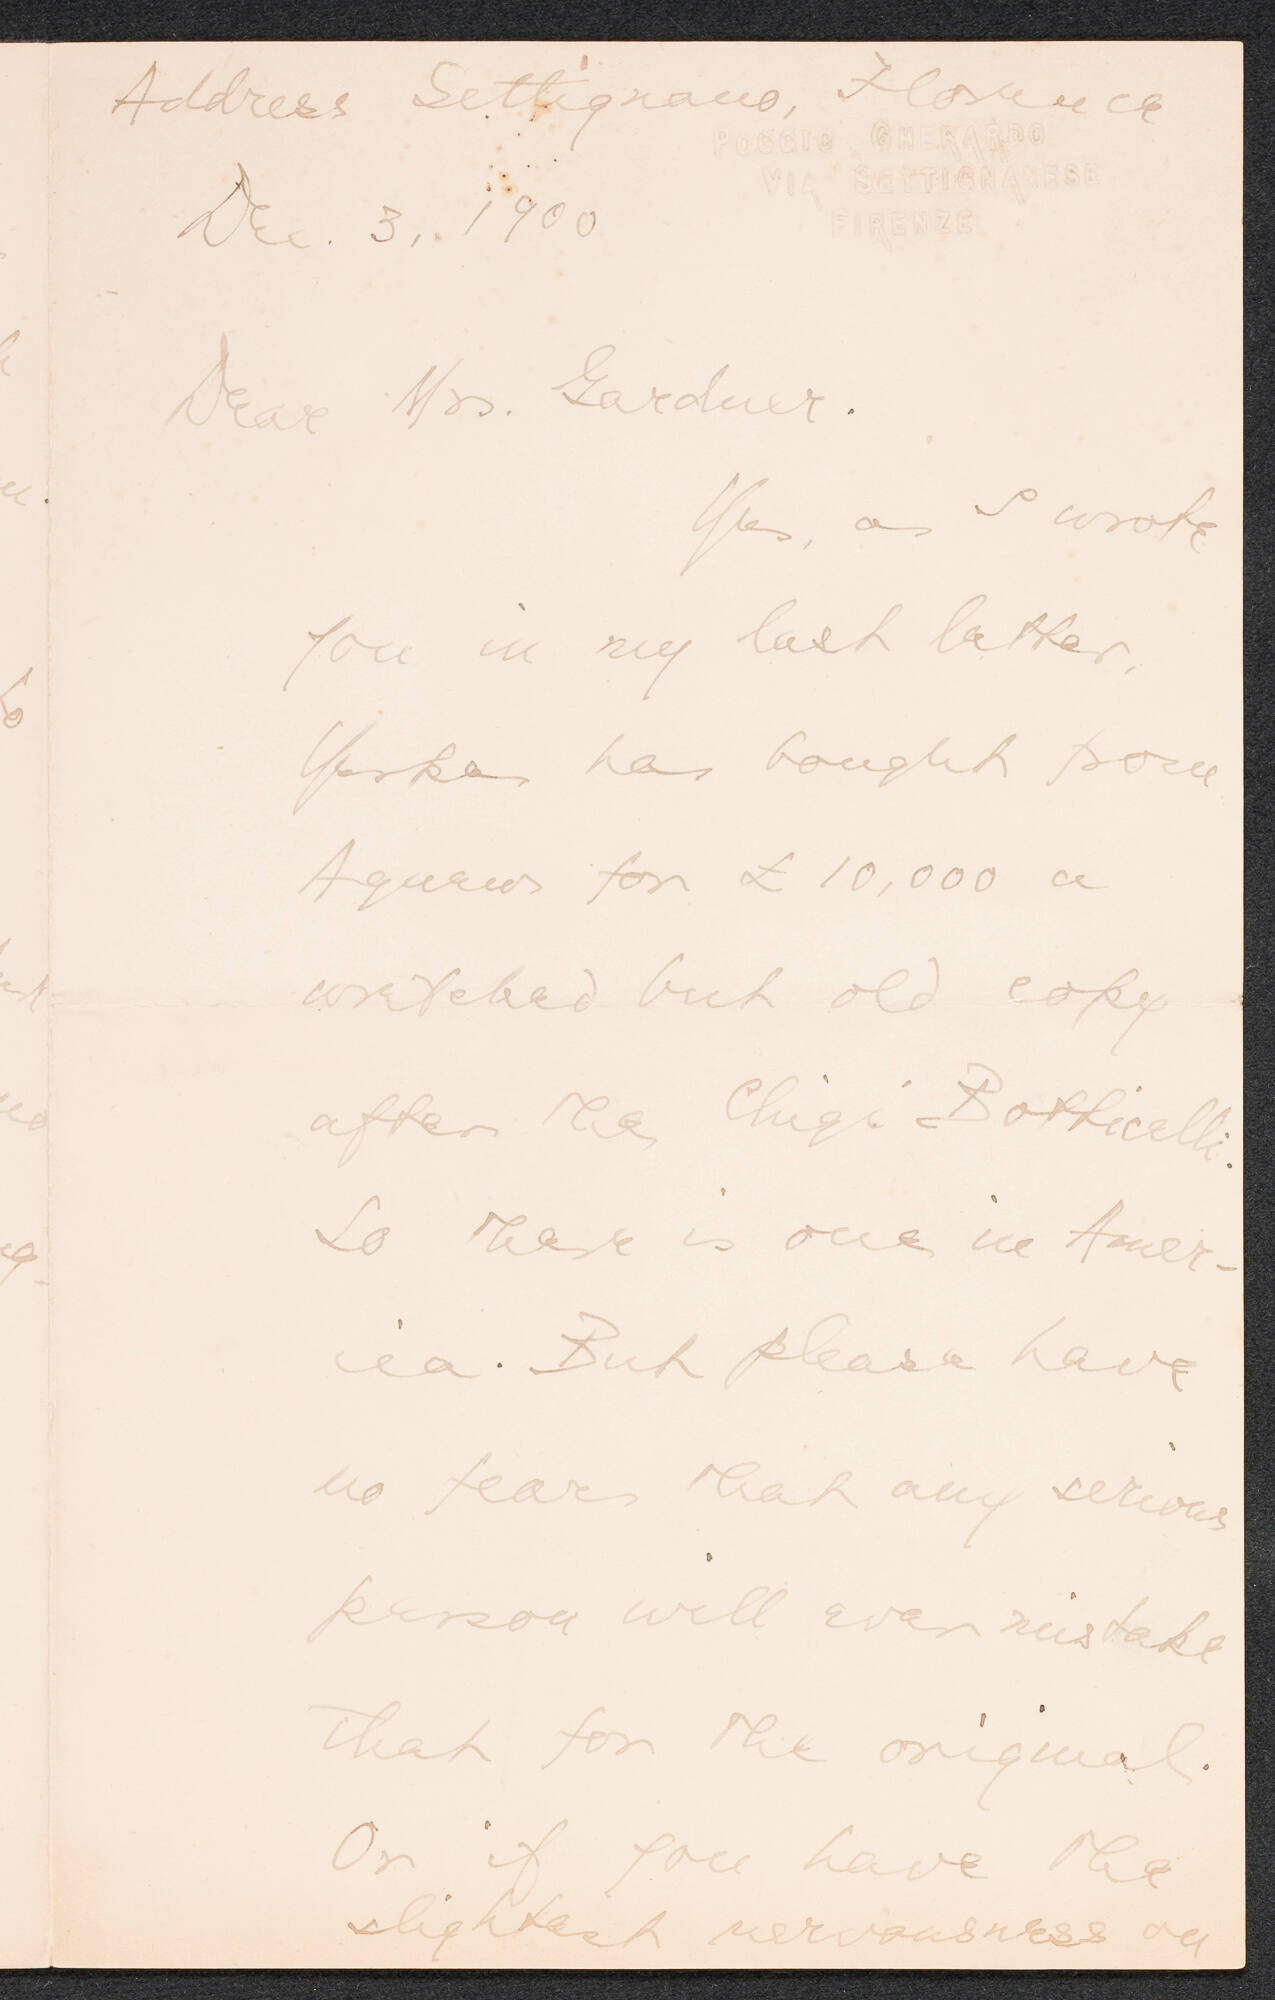 Address Settignano, Florence
POGGIO GHERARDO
VIA SETTIGNANESE
FIRENZE
Dec. 3, 1900
Dear Mrs. Gardner.
Yes, as I wrote
you in my last letter,
Yerkes has bought from
Agnews for £10,000 a
wretched but old copy
after the Chigi Botticelli.
So there is one in Amer-
ica. But please have
no fears that any serious
person will ever mistake
that for the original.
Or if you have the
slightest nervousness on